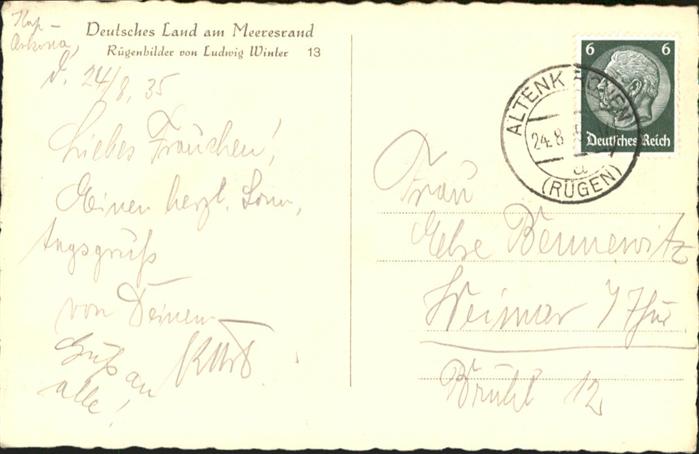 Kap-
Arkona,
Deutsches Land am Meeresrand
Rügenbilder von Ludwig Winter 13
d. 24/8. 35
Liebes Frauchen!
Einen herzl. Sonn,
tagsgruß
von Deinem
Kurt
Gruß an
alle!
6 6
Deutsches Reich
ALTENKIRCHEN
24.8.
a
(RÜGEN)
Frau
Else Bennewitz
Weimar / Thür
Brühl 12